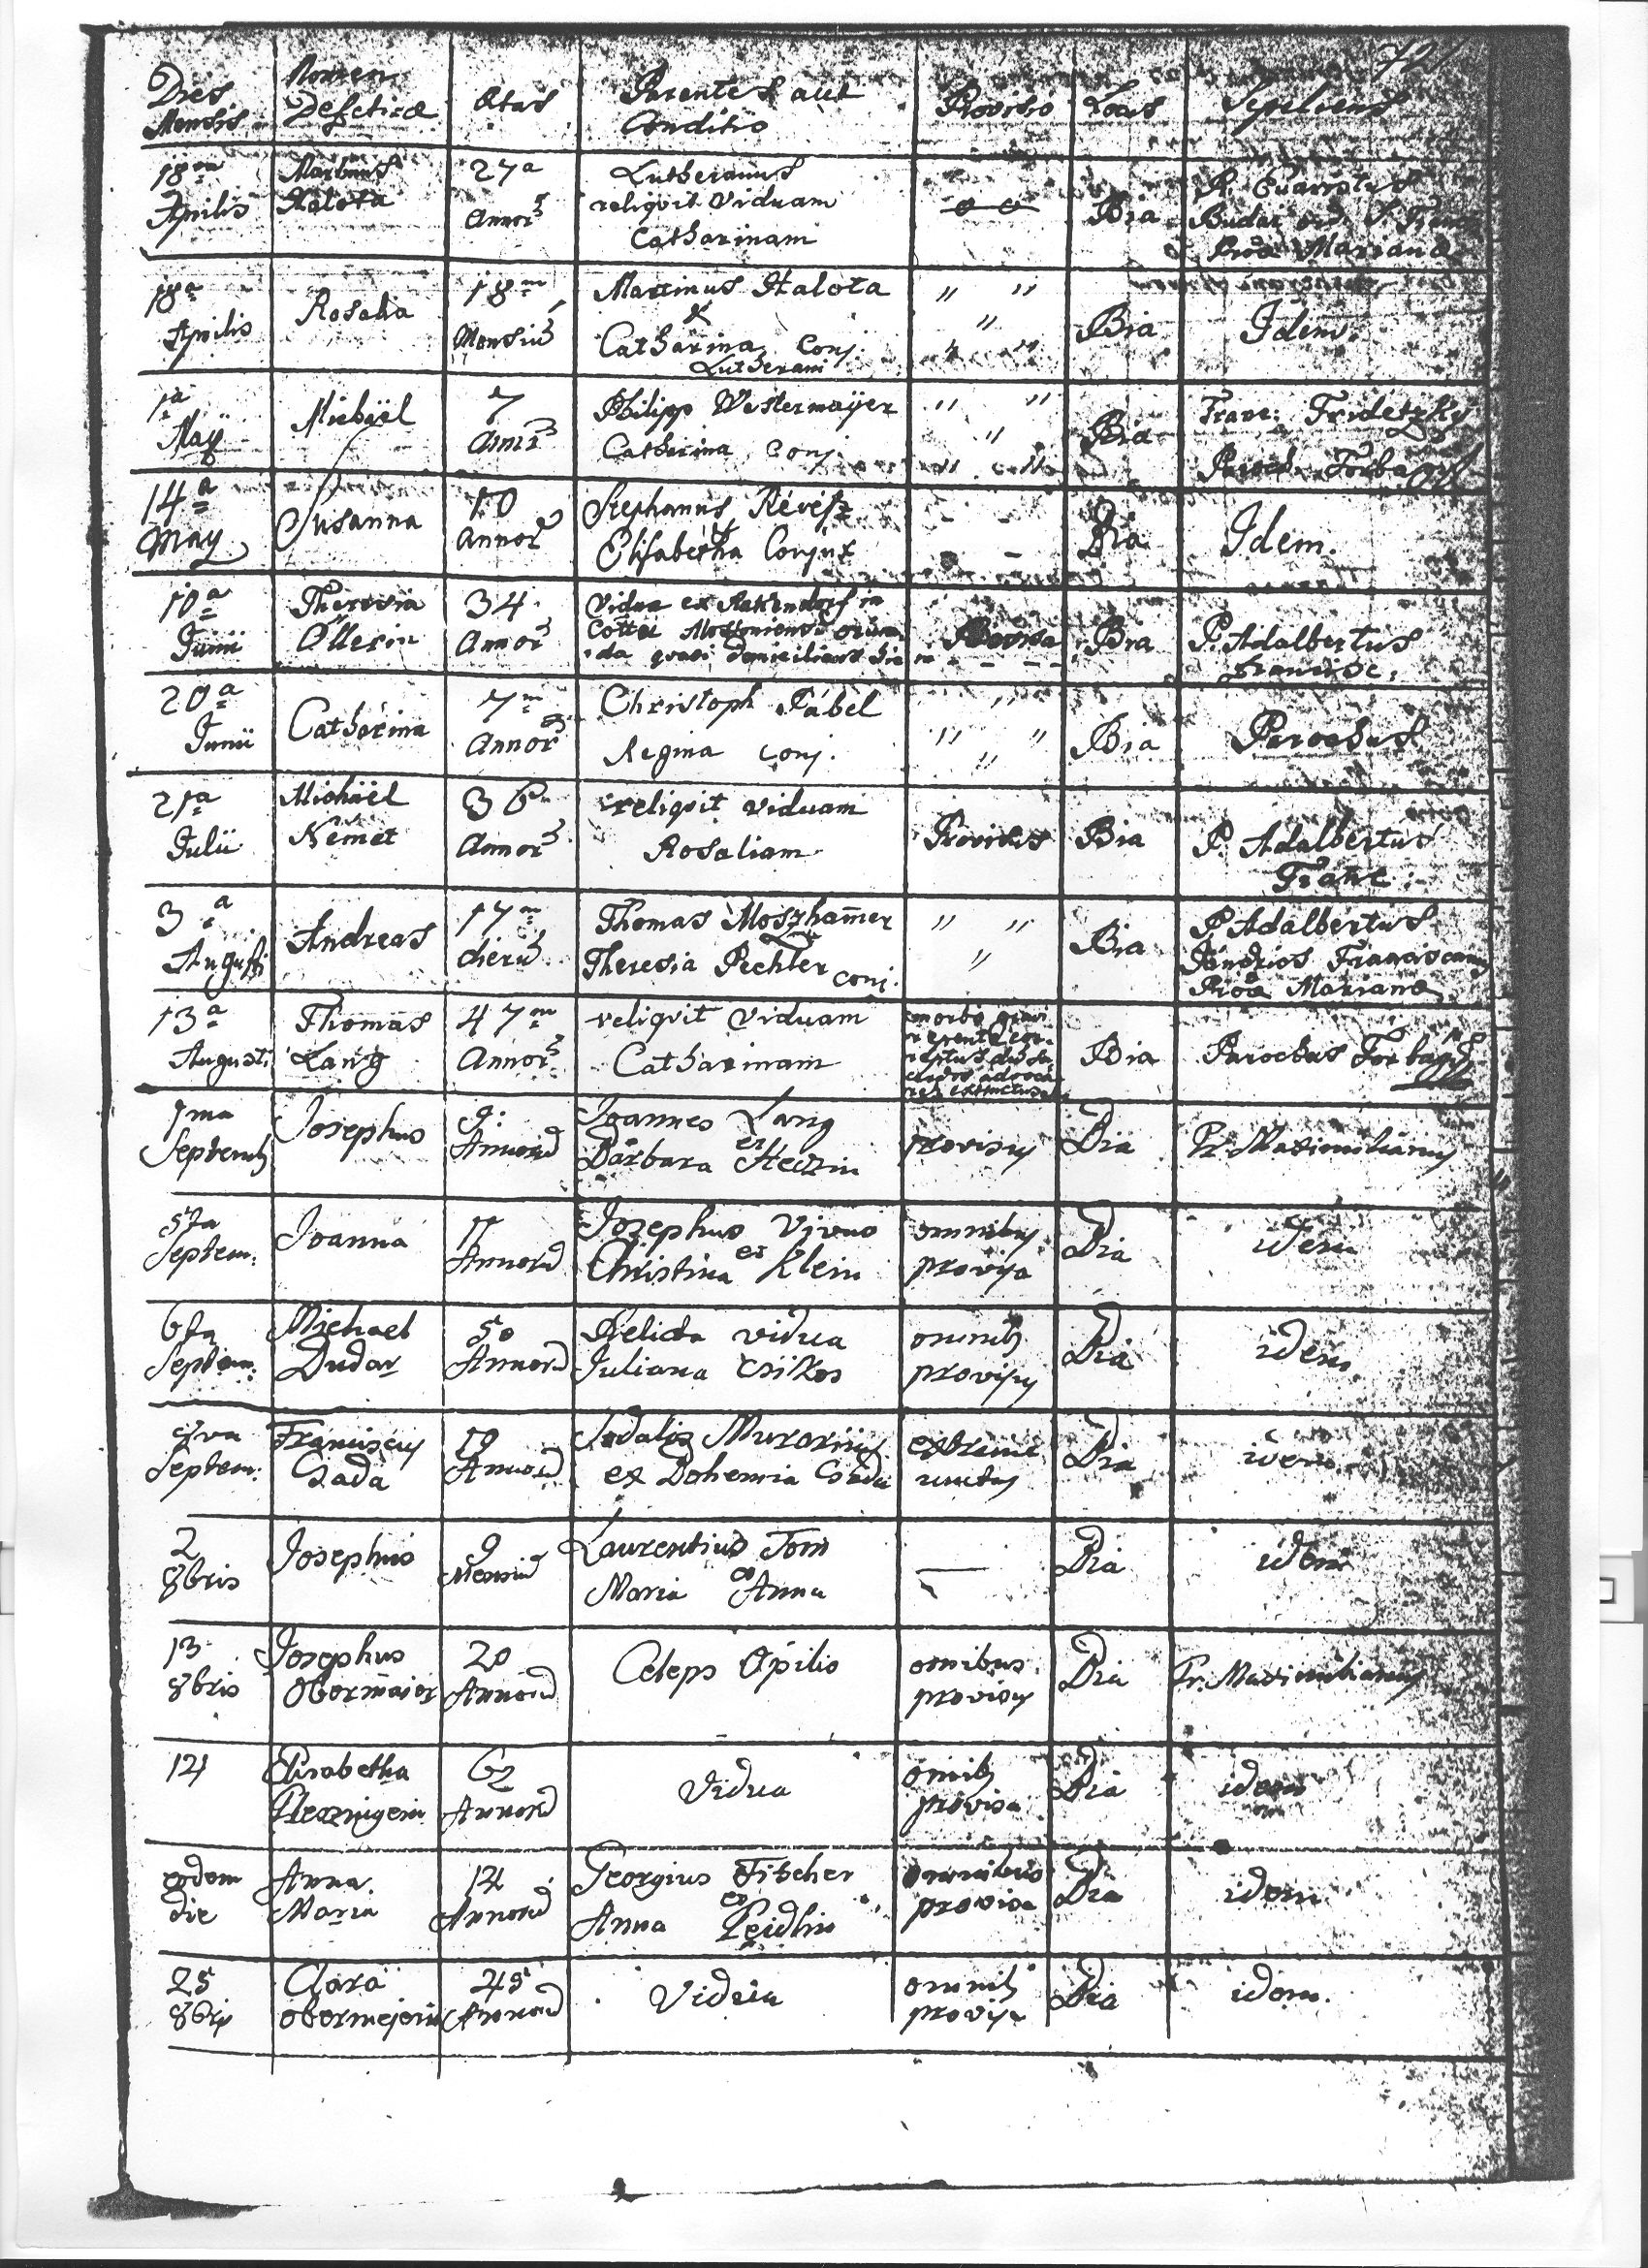 721
Dies Mensis
Nomen Defuncti
Ætas
Parentes aut Conditio
Provisio
Locus
Sepeliens
18va Aprilis
Martinus Halota
27a Annor
Lutheranus
reliqvit Viduam
Catharinam
Bia
P. Evaristus
Budai ord. S. Franc
Prōae Marianae
18a Aprilis
Rosalia
18m Mensiũ
Martinus Halota
&
Catharina Conj.
Lutherani
" "
"
" "
Bia
Idem.
1a Maÿ
Michaël
7 Annor
Philipp Westermaÿer
Catherina Conj.
" "
"
" "
Bia
Franc: Fridetzky
Paroch. Torbágy
14a May
Susanna
10 Annor
Stephanus Révész
&
Elisabetha Conjux
- -
Bia
Idem.
10a Junii
Theresia Öllerin
34. Annor
Vidua ex
Cottu Mosoniensi oriun-
da quasi domicilians
Provisa
Bia
P. Adalbertus
Francisc.
20a Junii
Catherina
7m Annor
Christoph Fábel
Regina conj.
"
" "
"
Bia
Parochus
21a Julii
Michaël Német
36m Annor
reliqvit viduam
Rosaliam
Provisus
Bia
P. Adalbertus
Franc.
3a Augusti
Andreas
17m dierũ
Thomas Moszham̃er
Theresia Pechler conj.
" "
"
Bia
P. Adalbertus
Franciscanus
Prōae Marianae
13a Augusti
Thomas Lang
47m Annor
reliqvit Viduam
Catharinam
morbo gravi
repente cor-
reptus
extinctus
Bia
Parochus Torbágy
1ma Septemb
Josephus
9. Annord
Joannes Lang
et
Barbara
provisus
Bia
Pr. Maximilianus
5ta Septem:
Joanna
17 Annord
Josephus
et
Christina Klein
omnibus
provisa
Bia
idem
6ta Septem:
Michael Dudar
50 Annord
Relicta vidua
Juliana Csikos
omnib
provisus
Bia
idem
8va Septem:
Franciscus
19 Annord
Sodalis Murarius
ex Bohemia
extreme
unctus
Bia
idem
2 8bris
Josephus
9 Mensiũ
Laurentius Tom
et
Maria Anna
—
Bia
idem
13 8bris
Josephus Obermaier
20 Annord
Celeps Opilio
omibus
provisus
Bia
Fr. Maximilianus
14
Elisabetha
62 Annord
Vidua
omib
provisa
Bia
idem
eodem die
Anna Maria
14 Annord
Georgius Fitscher
et
Anna Leidlin
omnibus
provisa
Bia
idem
25 8bris
Clara Obermejerin
45 Annord
Vidua
omnib
provisa
Bia
idem.